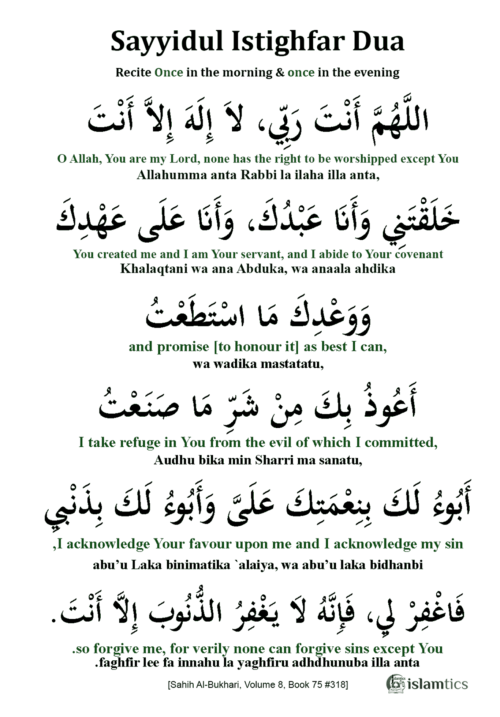 Sayyidul Istighfar Dua
Recite Once in the morning & once in the evening
اللَّهُمَّ أَنْتَ رَبِّي، لاَ إِلَهَ إِلاَّ أَنْتَ
O Allah, You are my Lord, none has the right to be worshipped except You
Allahumma anta Rabbi la ilaha illa anta,
خَلَقْتَنِي وَأَنَا عَبْدُكَ، وَأَنَا عَلَى عَهْدِكَ
You created me and I am Your servant, and I abide to Your covenant
Khalaqtani wa ana Abduka, wa anaala ahdika
وَوَعْدِكَ مَا اسْتَطَعْتُ
and promise [to honour it] as best I can,
wa wadika mastatatu,
أَعُوذُ بِكَ مِنْ شَرِّ مَا صَنَعْتُ
I take refuge in You from the evil of which I committed,
Audhu bika min Sharri ma sanatu,
أَبُوءُ لَكَ بِنِعْمَتِكَ عَلَىَّ وَأَبُوءُ لَكَ بِذَنْبِي
,I acknowledge Your favour upon me and I acknowledge my sin
abu’u Laka binimatika `alaiya, wa abu’u laka bidhanbi
فَاغْفِرْ لِي، فَإِنَّهُ لَا يَغْفِرُ الذُّنُوبَ إِلَّا أَنْتَ.
.so forgive me, for verily none can forgive sins except You
.faghfir lee fa innahu la yaghfiru adhdhunuba illa anta
[Sahih Al-Bukhari, Volume 8, Book 75 #318]
islamtics